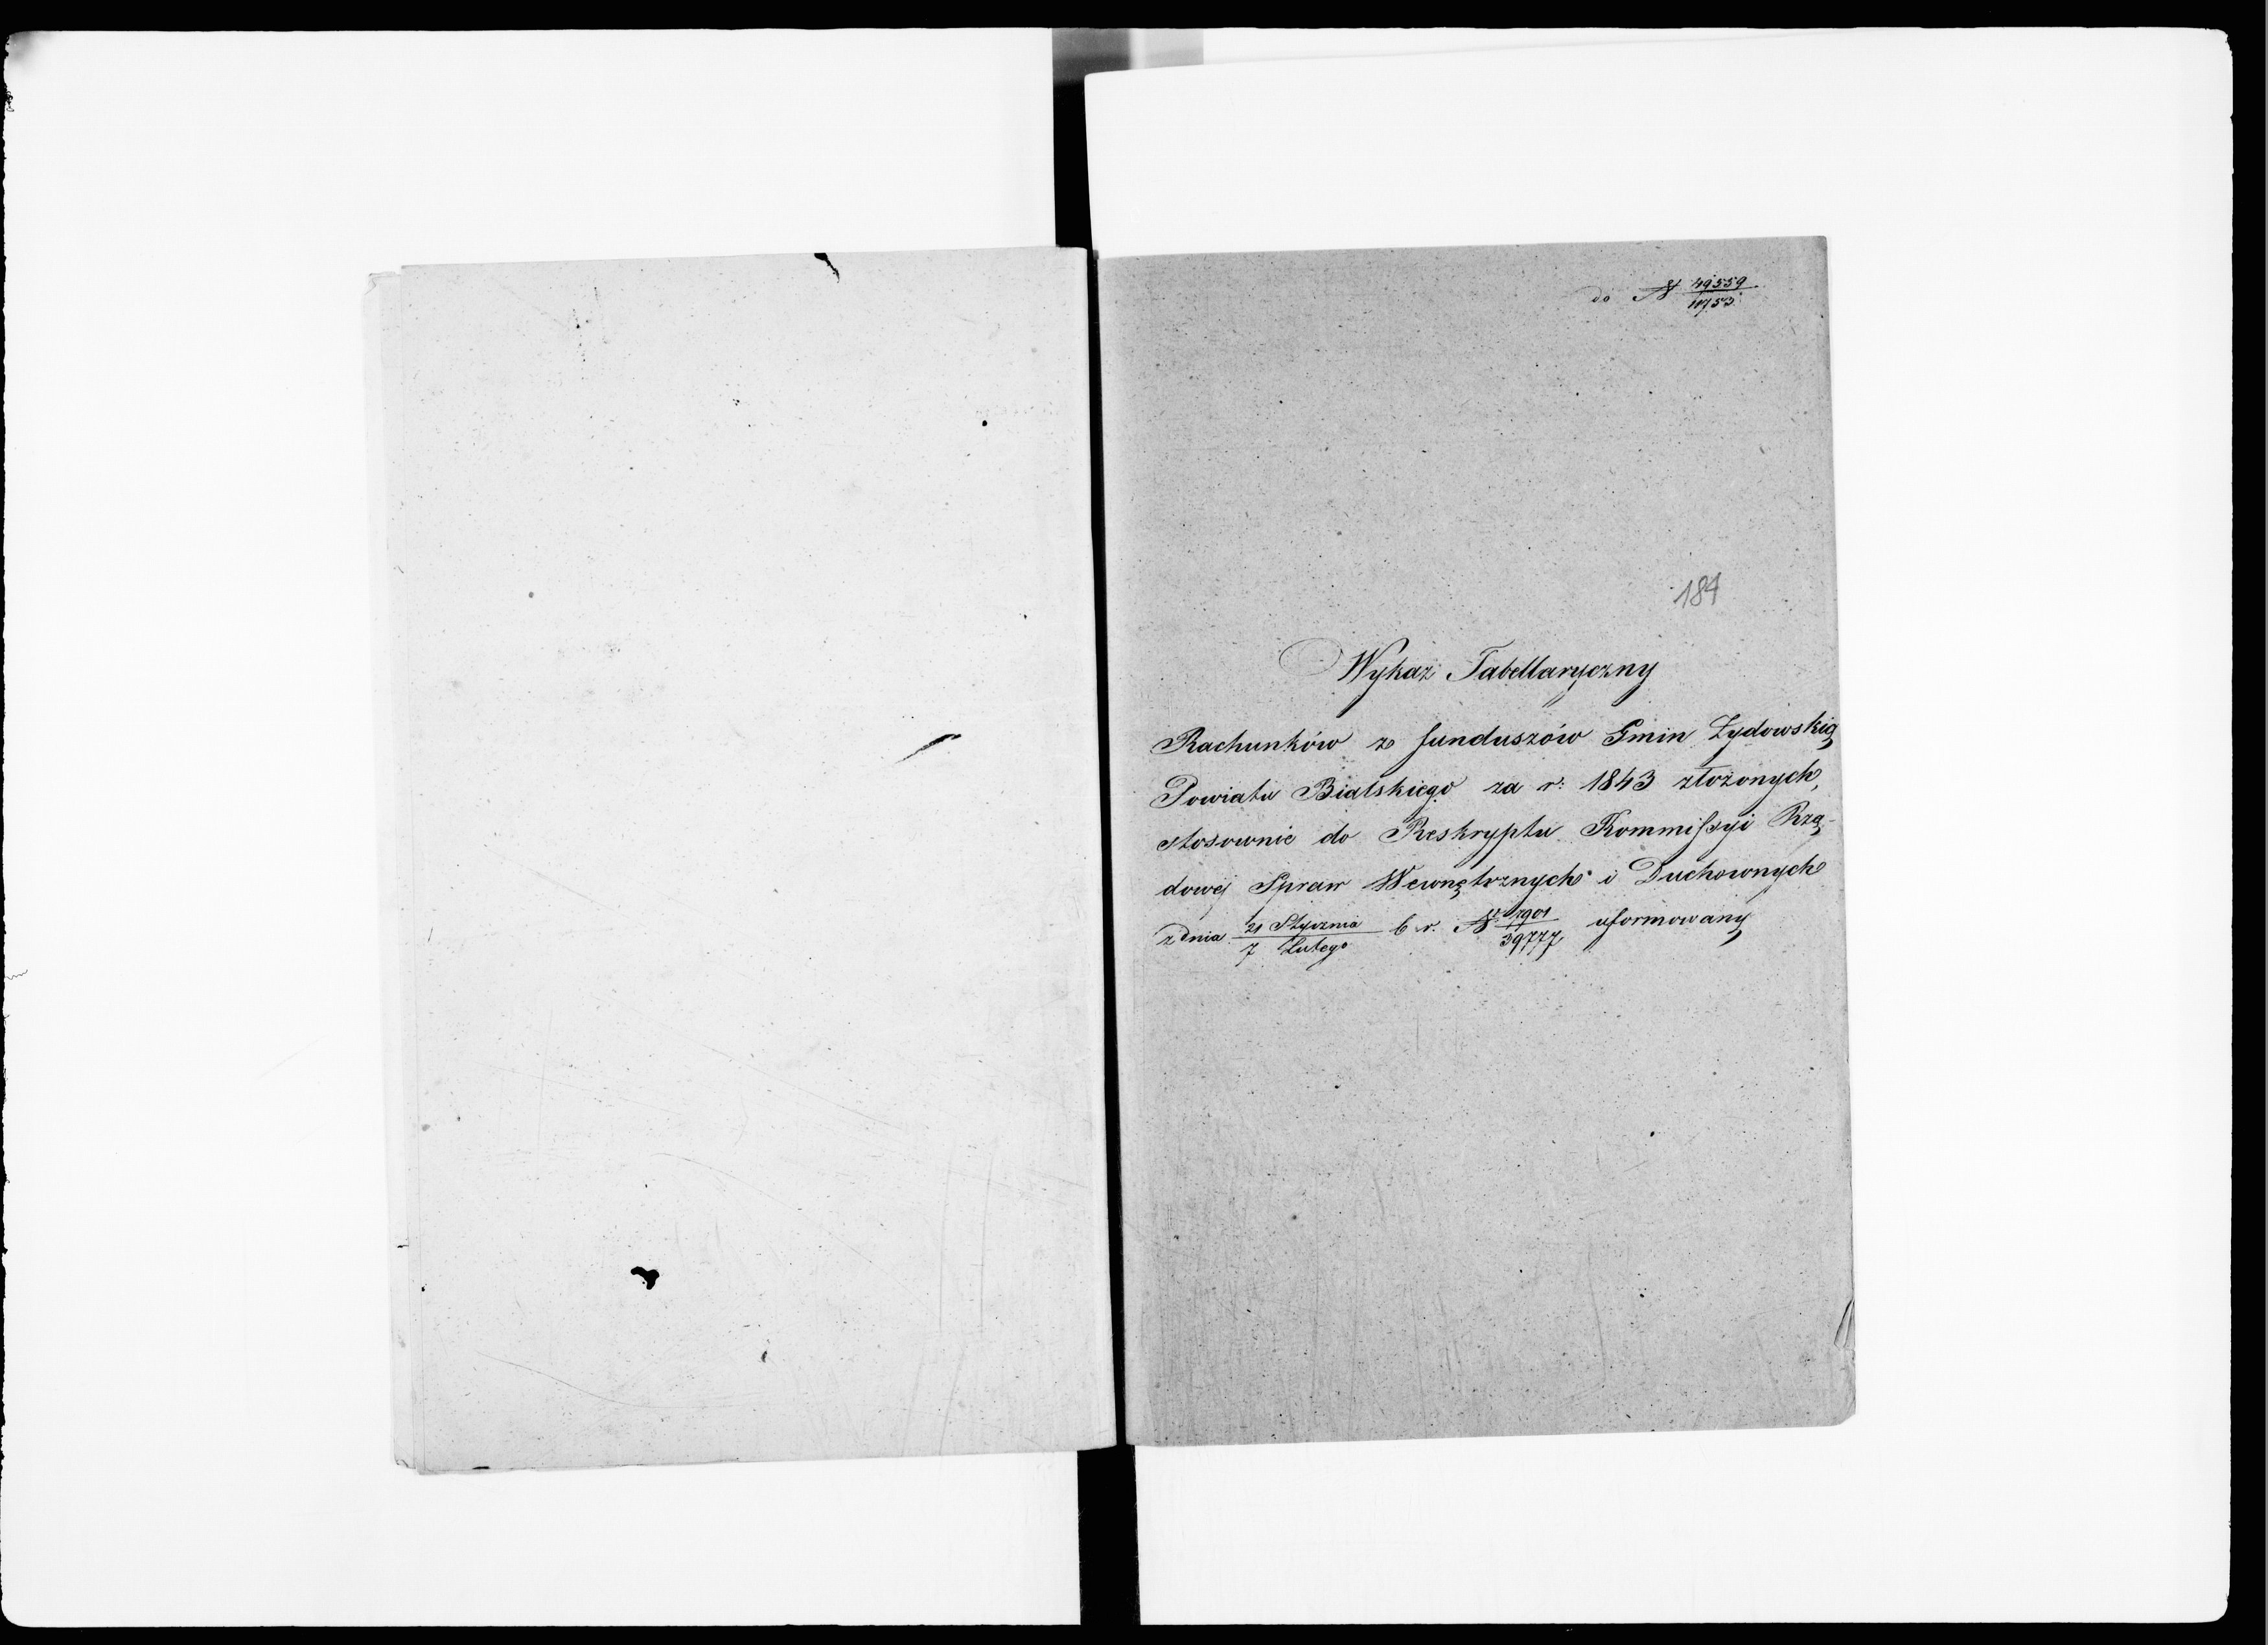 do N 49559/11953
184
Wykaz Tabellaryczny
Rachunków z funduszów Gmin Żydowskich
Powiatu Bialskiego za r: 1843 złożonych,
stosownie do Reskryptu Kommissyi Rzą-
dowéj Spraw Wewnętrznych i Duchownych
z dnia 21 Stycznia/7 Lutego b r. N 7901/39777 uformowany